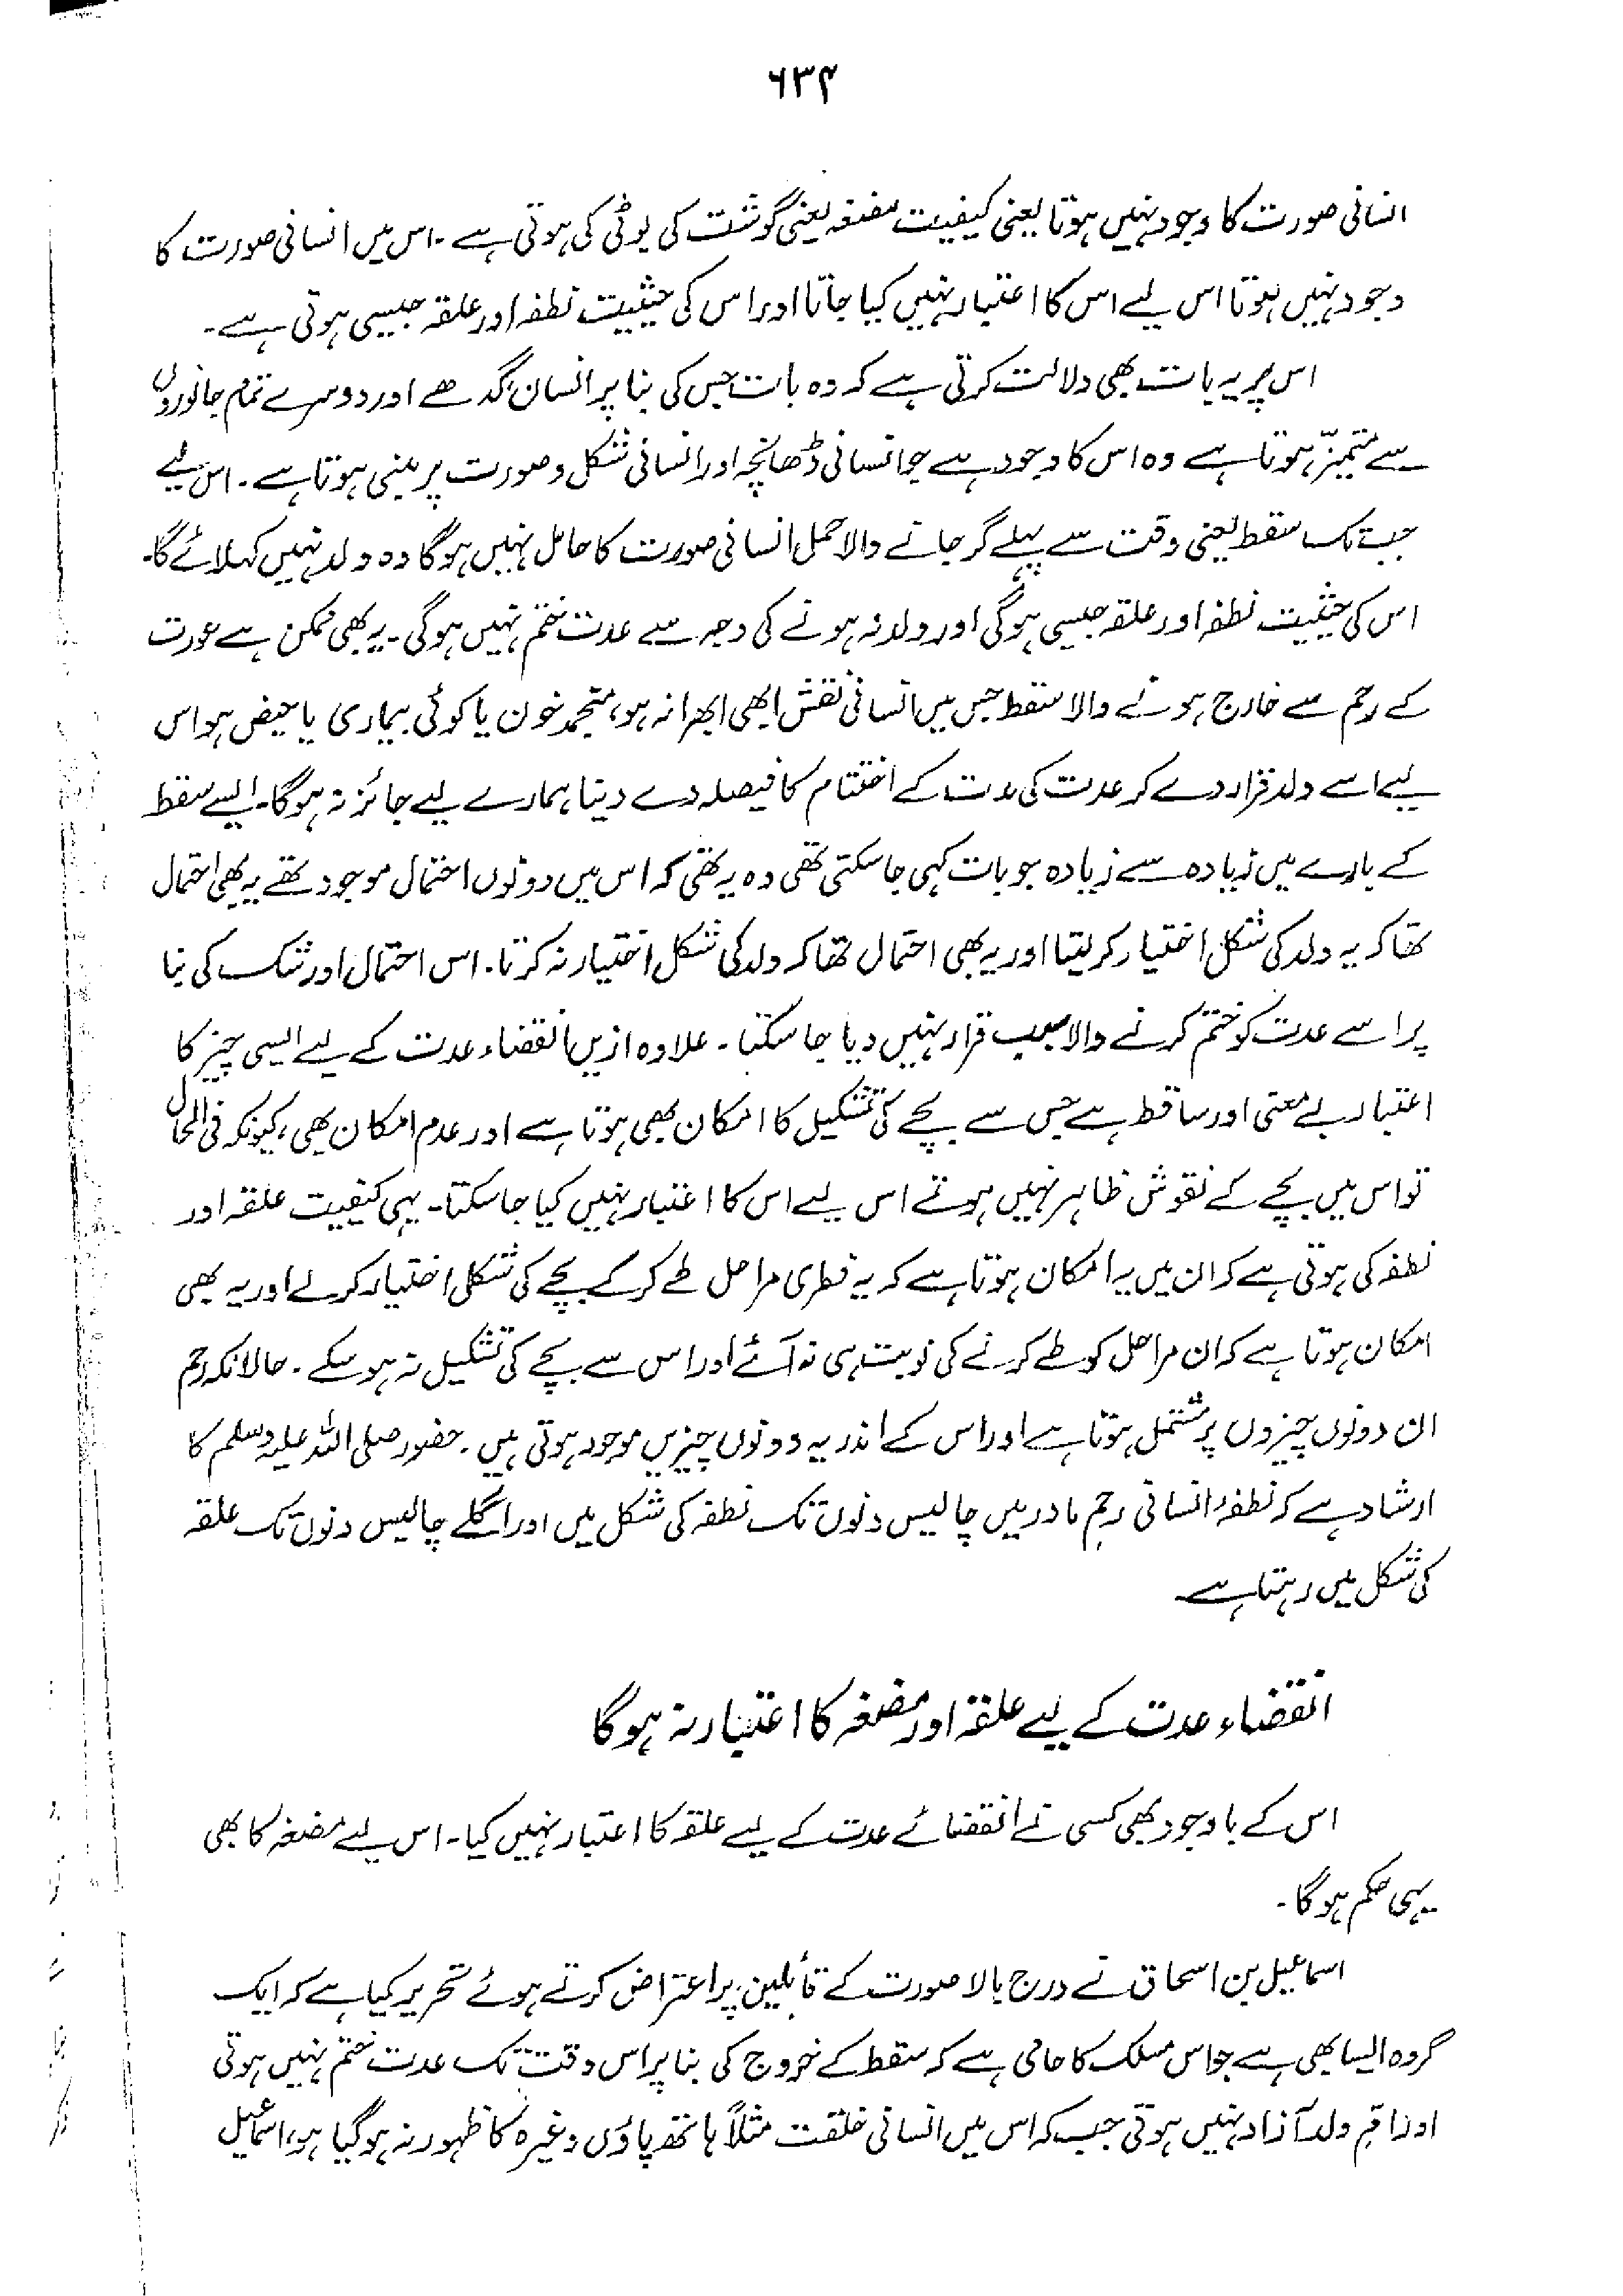 ۶۳۴
انسانی صورت کا وجود نہیں ہوتا یعنی کیفیت مضغہ یعنی گوشت کی بوٹی کی ہوتی ہے۔ اس میں انسانی صورت کا
وجود نہیں ہوتا اس لیے اس کا اعتبار نہیں کیا جاتا اور اس کی حیثیت نطفہ اور علقہ جیسی ہوتی ہے۔
اس پر یہ بات بھی دلالت کرتی ہے کہ وہ بات جس کی بنا پر انسان، گدھے اور دوسرے تمام جانوروں
سے متمیّز ہوتا ہے وہ اس کا وجود ہے جو انسانی ڈھانچہ اور انسانی شکل و صورت پر مبنی ہوتا ہے۔ اس لیے
جب تک سقط یعنی وقت سے پہلے گر جانے والا حمل انسانی صورت کا حامل نہیں ہوگا وہ ولد نہیں کہلائے گا۔
اس کی حیثیت نطفہ اور علقہ جیسی ہوگی اور ولد نہ ہونے کی وجہ سے عدت ختم نہیں ہوگی۔ یہ بھی ممکن ہے عورت
کے رحم سے خارج ہونے والا سقط جس میں انسانی نقش ابھی ابھرا نہ ہو، منجمد خون یا کوئی بیماری یا حیض ہو اس
لیے اسے ولد قرار دے کر عدت کی مدت کے اختتام کا فیصلہ دے دینا ہمارے لیے جائز نہ ہوگا۔ ایسے سقط
کے بارے میں زیادہ سے زیادہ جو بات کہی جاسکتی تھی وہ یہ تھی کہ اس میں دونوں احتمال موجود تھے یہ بھی احتمال
تھا کہ یہ ولد کی شکل اختیار کر لیتا اور یہ بھی احتمال تھا کہ ولد کی شکل اختیار نہ کرتا۔ اس احتمال اور شک کی بنا
پر اسے عدت کو ختم کرنے والا سبب قرار نہیں دیا جا سکتا۔ علاوہ ازیں انقضاء عدت کے لیے ایسی چیز کا
اعتبار بے معنی اور ساقط ہے جس سے بچے کی تشکیل کا امکان بھی ہوتا ہے اور عدم امکان بھی، کیونکہ فی الحال
تو اس میں بچے کے نقوش ظاہر نہیں ہوتے اس لیے اس کا اعتبار نہیں کیا جا سکتا۔ یہی کیفیت علقہ اور
نطفہ کی ہوتی ہے کہ ان میں یہ امکان ہوتا ہے کہ یہ فطری مراحل طے کر کے بچے کی شکل اختیار کرلے اور یہ بھی
امکان ہوتا ہے کہ ان مراحل کو طے کرنے کی نوبت ہی نہ آئے اور اس سے بچے کی تشکیل نہ ہو سکے۔ حالانکہ رحم
ان دونوں چیزوں پر مشتمل ہوتا ہے اور اس کے اندر یہ دونوں چیزیں موجود ہوتی ہیں۔ حضور صلی اللہ علیہ وسلم کا
ارشاد ہے کہ نطفۂ انسانی رحم مادر میں چالیس دنوں تک نطفہ کی شکل میں اور اگلے چالیس دنوں تک علقہ
کی شکل میں رہتا ہے
انقضاء عدت کے لیے علقہ اور مضغہ کا اعتبار نہ ہوگا
اس کے باوجود بھی کسی نے انقضائے عدت کے لیے علقہ کا اعتبار نہیں کیا۔ اس لیے مضغہ کا بھی
یہی حکم ہوگا۔
اسماعیل بن اسحاق نے درج بالا صورت کے قائلین پر اعتراض کرتے ہوئے تحریر کیا ہے کہ ایک
گروہ ایسا بھی ہے جو اس مسلک کا حامی ہے کہ سقط کے خروج کی بنا پر اس وقت تک عدت ختم نہیں ہوتی
اور ام ولد آزاد نہیں ہوتی جب کہ اس میں انسانی خلقت مثلاً ہاتھ پاؤں وغیرہ کا ظہور نہ ہو گیا ہو، اسماعیل